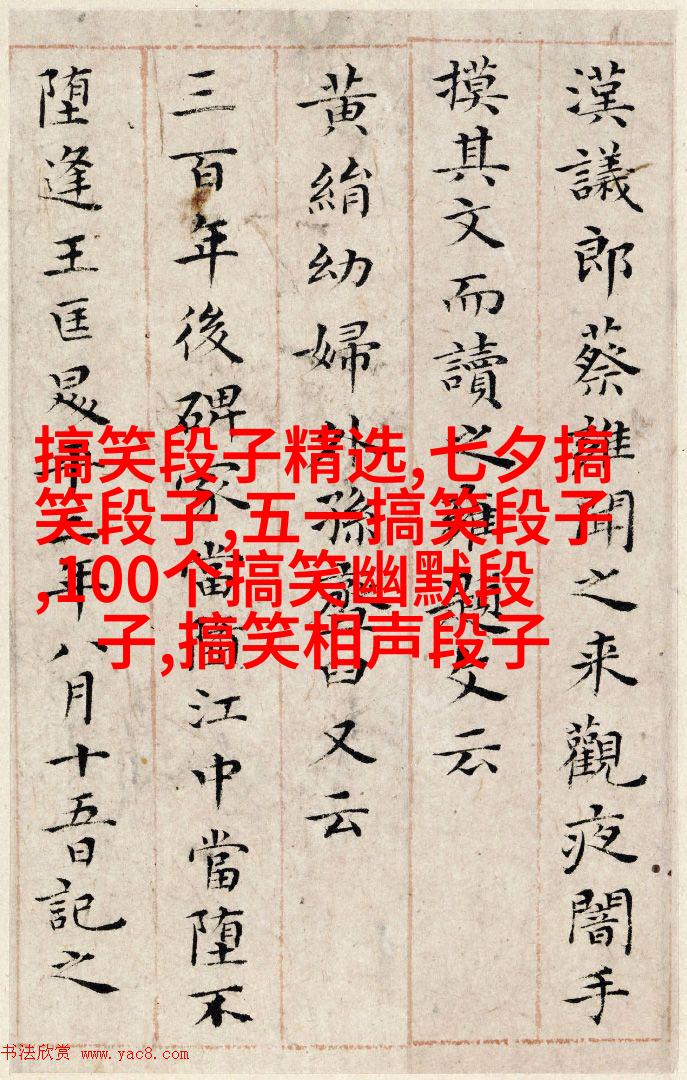 漢議郎蔡雝聞之来觀夜闇手
摸其文而讀之雝題文云
黄絹幼婦外孫臼又云
三百年後碑冢當江中當堕不
堕逢王匡年八月十五日記之
搞笑段子精选,七夕搞
笑段子,五一搞笑段子
,100个搞笑幽默段
子,搞笑相声段子
书法欣赏 www.yac8.com